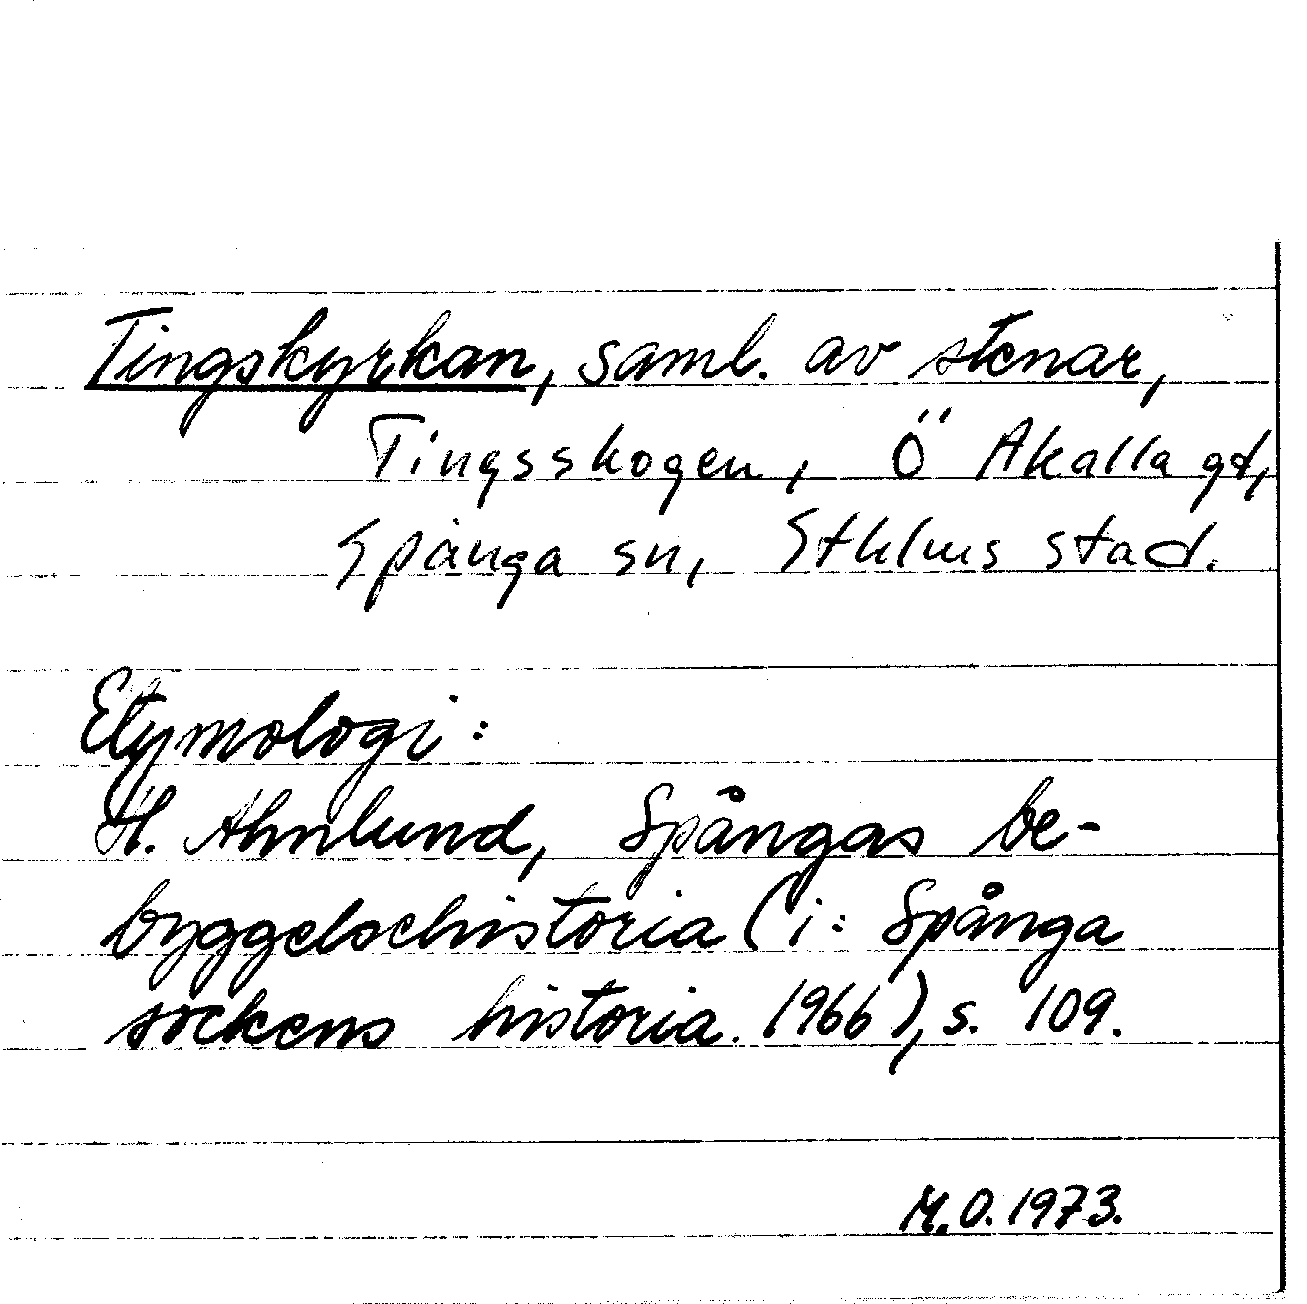 Tingskyrkan, saml. av stenar,
Tingsskogen, Ö Akalla gd,
Spånga sn, Sthlms stad.
Etymologi:
H. Ahnlund, Spångas be-
byggelsehistoria (i: Spånga
sockens historia. 1966), s. 109.
M.O. 1973.